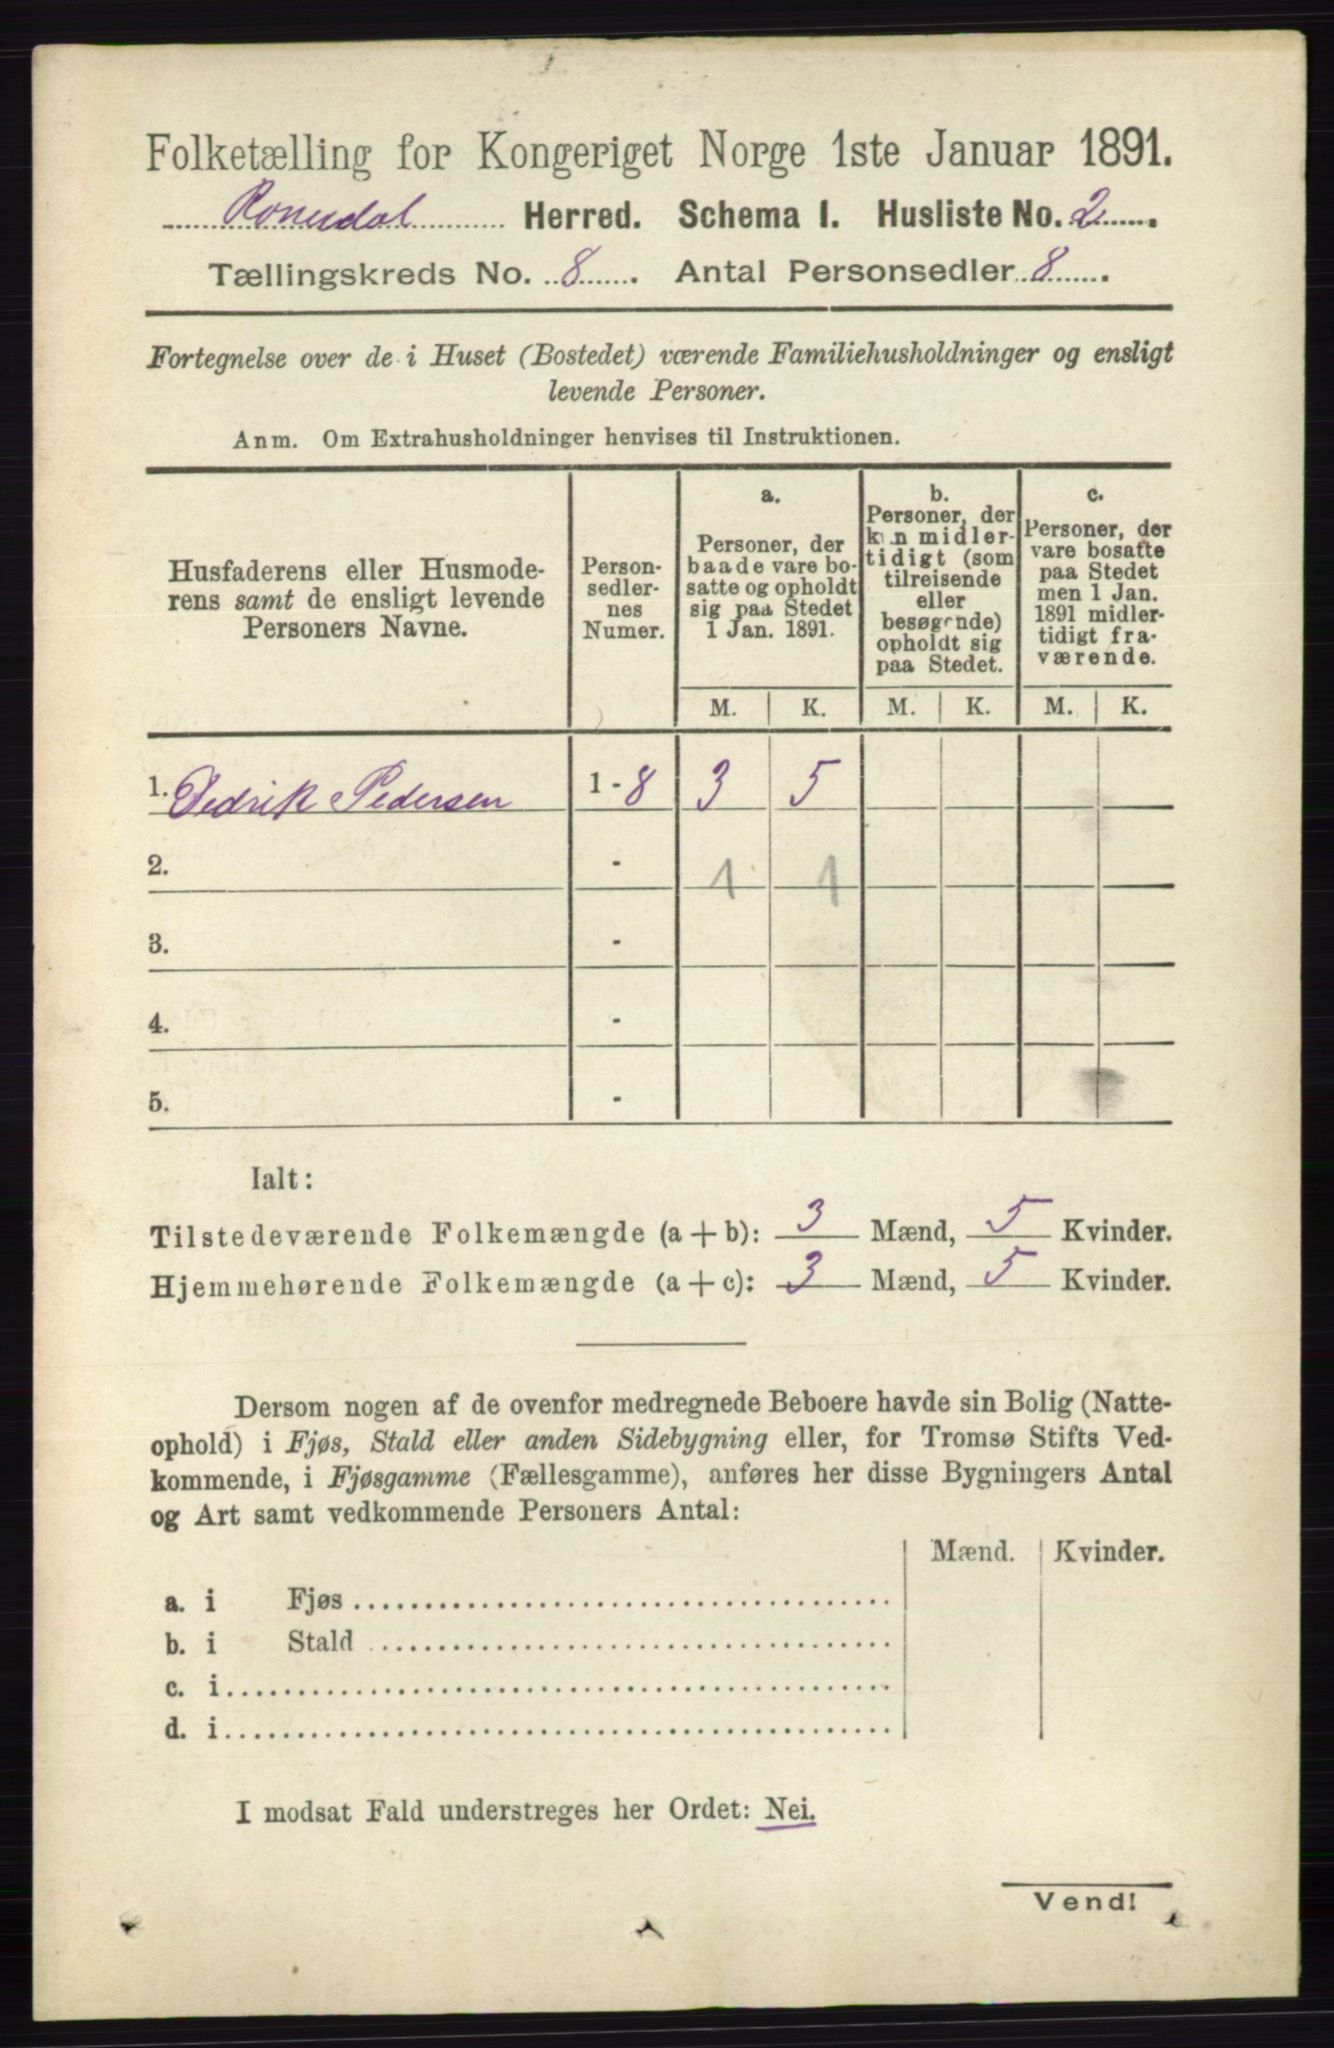 Folketælling for Kongeriget Norge 1ste Januar 1891.
Romedal Herred. Schema I. Husliste No. 2
Tællingskreds No. 8. Antal Personsedler 8.
Fortegnelse over de i Huset (Bostedet) værende Familiehusholdninger og ensligt
levende Personer.
Anm. Om Extrahusholdninger henvises til Instruktionen.
Husfaderens eller Husmode-
rens samt de ensligt levende
Personers Navne.
Person-
sedler-
nes
Numer.
a.
Personer, der
baade vare bo-
satte og opholdt
sig paa Stedet
1 Jan. 1891.
b.
Personer, der
kun midler-
tidigt (som
tilreisende
eller
besøgende)
opholdt sig
paa Stedet.
c.
Personer, der
vare bosatte
paa Stedet
men 1 Jan.
1891 midler-
tidigt fra-
værende.
M. K. M. K. M. K.
1. Pedersen 1 - 8 3 5
2. - 1 1
3. -
4. -
5. -
Ialt:
Tilstedeværende Folkemængde (a + b): 3 Mænd, 5 Kvinder.
Hjemmehørende Folkemængde (a + c): 3 Mænd, 5 Kvinder.
Dersom nogen af de ovenfor medregnede Beboere havde sin Bolig (Natte-
ophold) i Fjøs, Stald eller anden Sidebygning eller, for Tromsø Stifts Ved-
kommende, i Fjøsgamme (Fællesgamme), anføres her disse Bygningers Antal
og Art samt vedkommende Personers Antal:
Mænd. Kvinder.
a. i Fjøs
b. i Stald
c. i
d. i
I modsat Fald understreges her Ordet: Nei.
Vend!